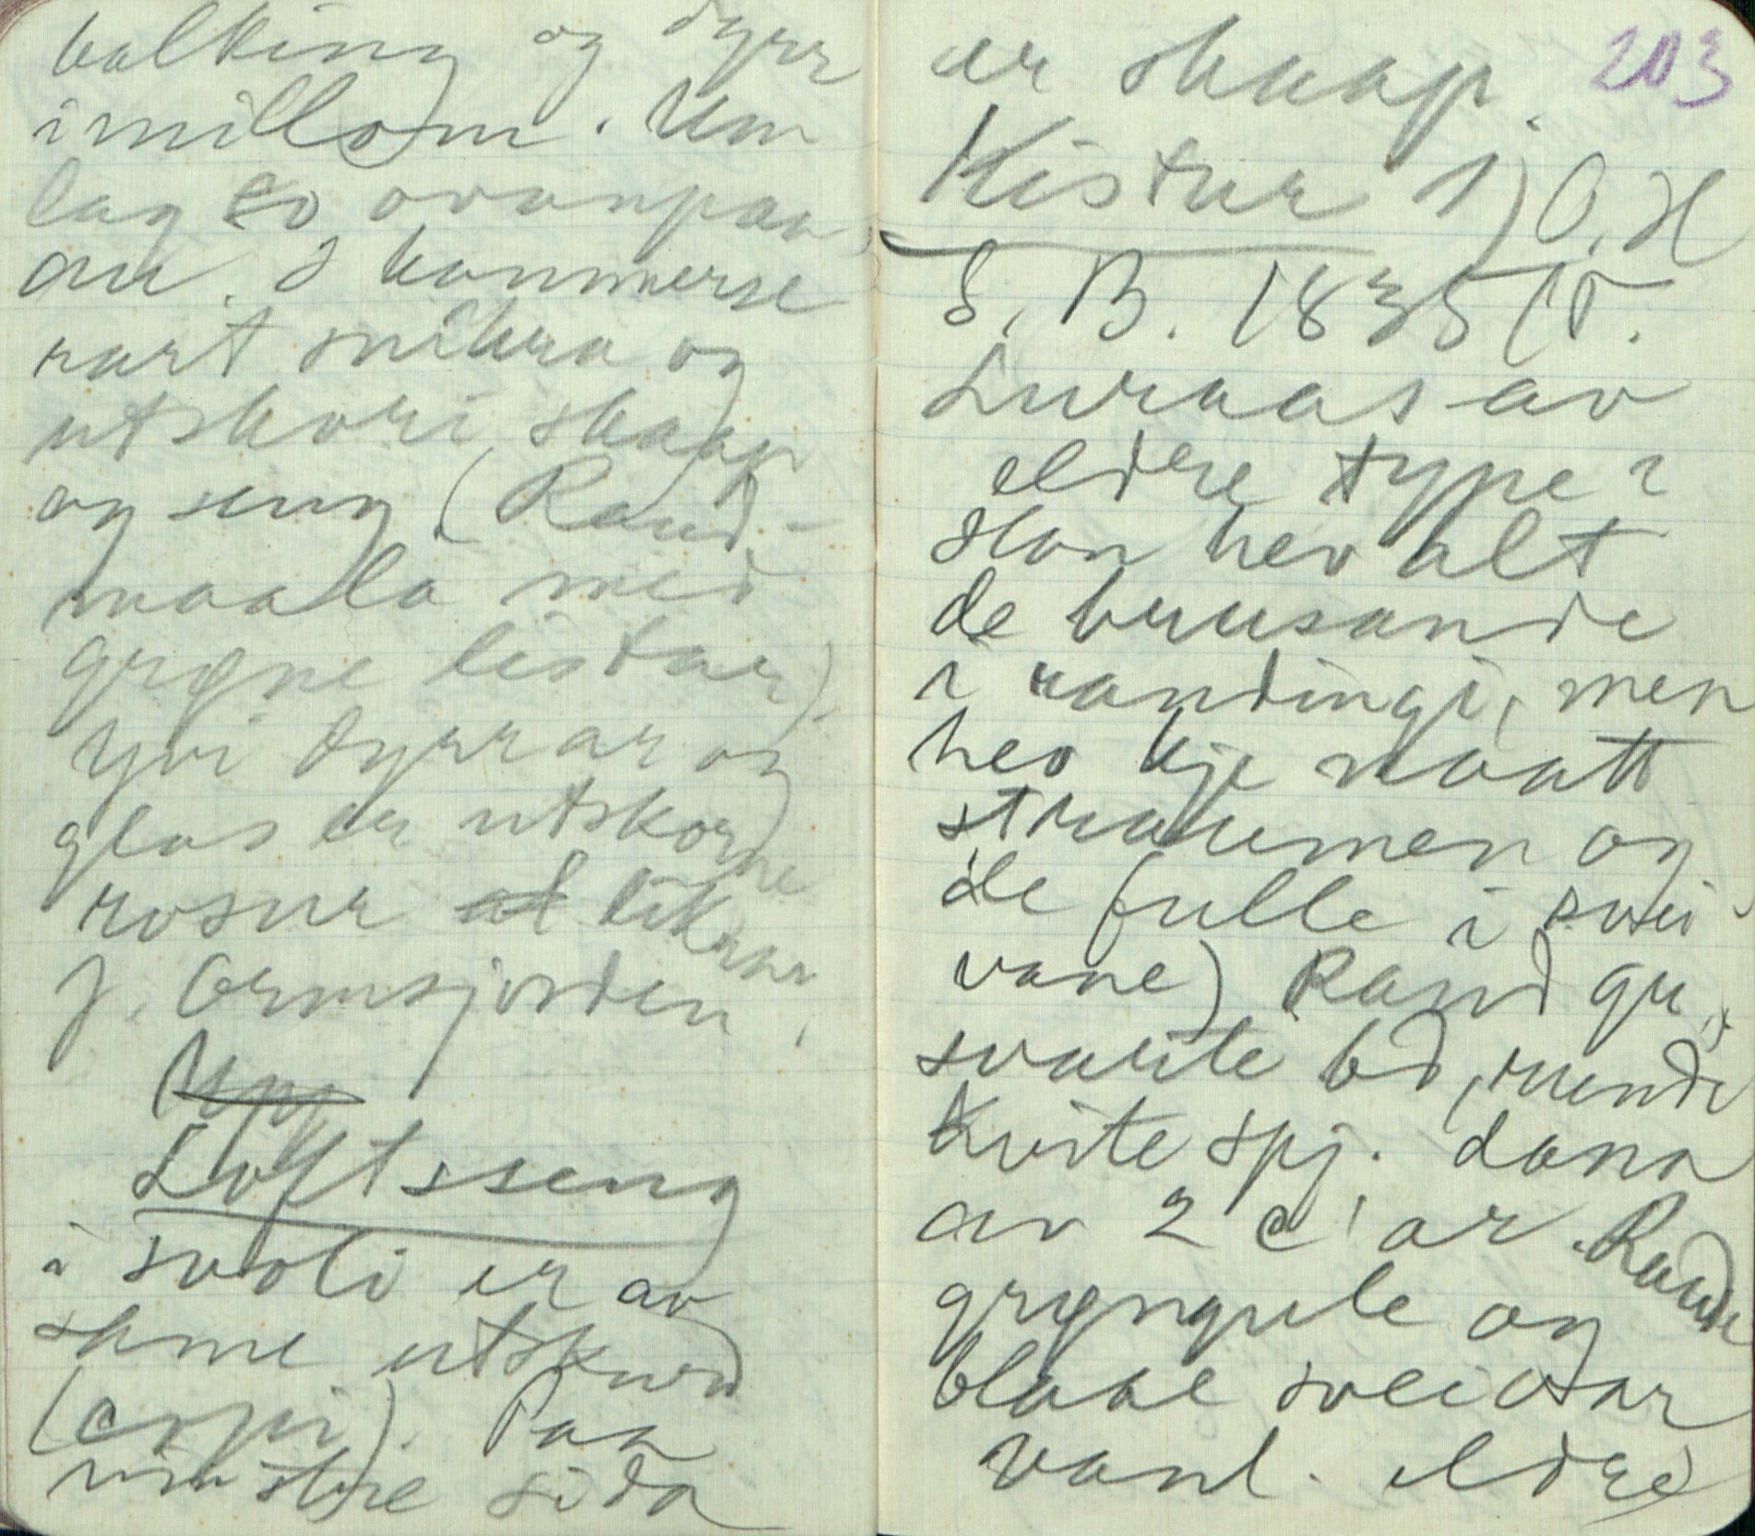 balking og dyrr
imillom. Um
lag so ovanpaa
au. I kammerse
rart snikra og
utskori skaap
og seng (Raud-
maala med
grøne listar)
Yvi dyrrar og
glas er utskorne
rosur likeins
J. Ormsjorden,
Upp
Loftsseng
i svoli er av
same utskurd
(copi). Paa
vinstre sida
er skaap. 203
Kistur 1) O. H
S. B. 1835 (T.
Luraas av
eldre type :
Han hev alt
de brusande
i randingi, men
hev kje naatt
straumen og
de fulle i svei-
vane) Rand gu,
svarte bd, runde
kvite spj. dana
av 2 c'ar. Raude
grøngule og
blaae sveivar
vanl. eldre